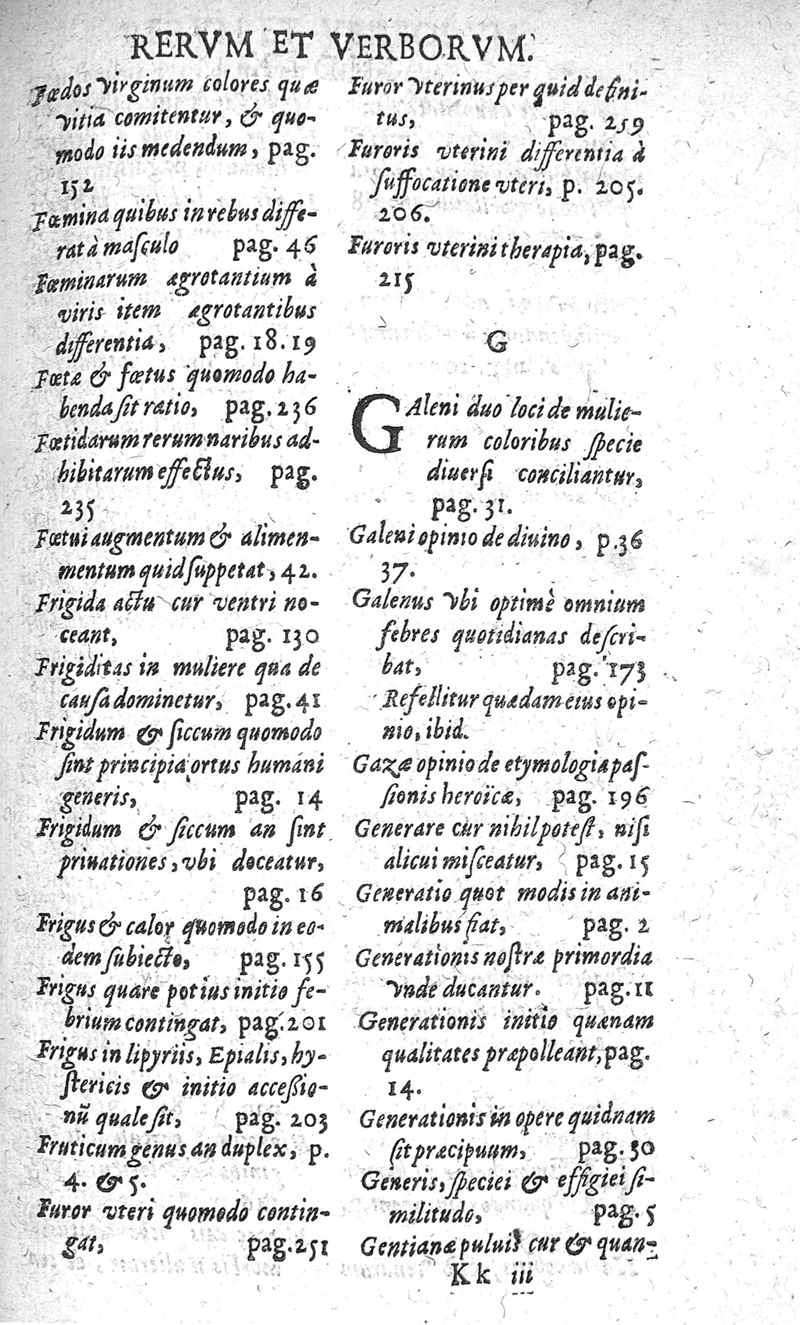 RERVM ET VERBORVM.
Fœdos virginum colores quæ
vitia comitentur, & quo-
modo iis medendum, pag.
152
Fœmina quibus in rebus diffe-
rat à maſculo pag. 46
Fœminarum ægrotantium à
viris item ægrotantibus
differentia, pag. 18. 19
Fœtæ & fœtus quomodo ha-
benda ſit ratio, pag. 236
Fœtidarum rerum naribus ad-
hibitarum effectus, pag.
235
Fœtui augmentum & alimen-
mentum quid ſuppetat, 42.
Frigida actu cur ventri no-
ceant, pag. 130
Frigiditas in muliere qua de
cauſa dominetur, pag. 41
Frigidum & ſiccum quomodo
ſint principia ortus humani
generis, pag. 14
Frigidum & ſiccum an ſint
priuationes, vbi doceatur,
pag. 16
Frigus & calor quomodo in eo-
dem ſubiecto, pag. 155
Frigus quare potius initio fe-
brium contingat, pag. 201
Frigus in lipyriis, Epialis, hy-
ſtericis & initio acceſſio-
nũ quale ſit, pag. 203
Fruticum genus an duplex, p.
4. & 5.
Furor vteri quomodo contin-
gat, pag. 251
Furor vterinus per quid defini-
tus, pag. 259
Furoris vterini differentia à
ſuffocatione vteri, p. 205.
206.
Furoris vterini therapia, pag.
215
G
GAleni duo loci de mulie-
rum coloribus ſpecie
diuerſi conciliantur,
pag. 31.
Galeni opinio de diuino, p. 36
37.
Galenus vbi optimè omnium
febres quotidianas deſcri-
bat, pag. 173
Refellitur quædam eius opi-
nio, ibid.
Gazæ opinio de etymologia paſ-
ſionis heroïcæ, pag. 196
Generare cur nihil poteſt, niſi
alicui miſceatur, pag. 15
Generatio quot modis in ani-
malibus fiat, pag. 2
Generationis noſtræ primordia
vnde ducantur. pag. 11
Generationis initio quænam
qualitates præpolleant, pag.
14.
Generationis in opere quidnam
ſit præcipuum, pag. 50
Generis, ſpeciei & effigiei ſi-
militudo, pag. 5
Gentianæ puluis cur & quan-
Kk iii